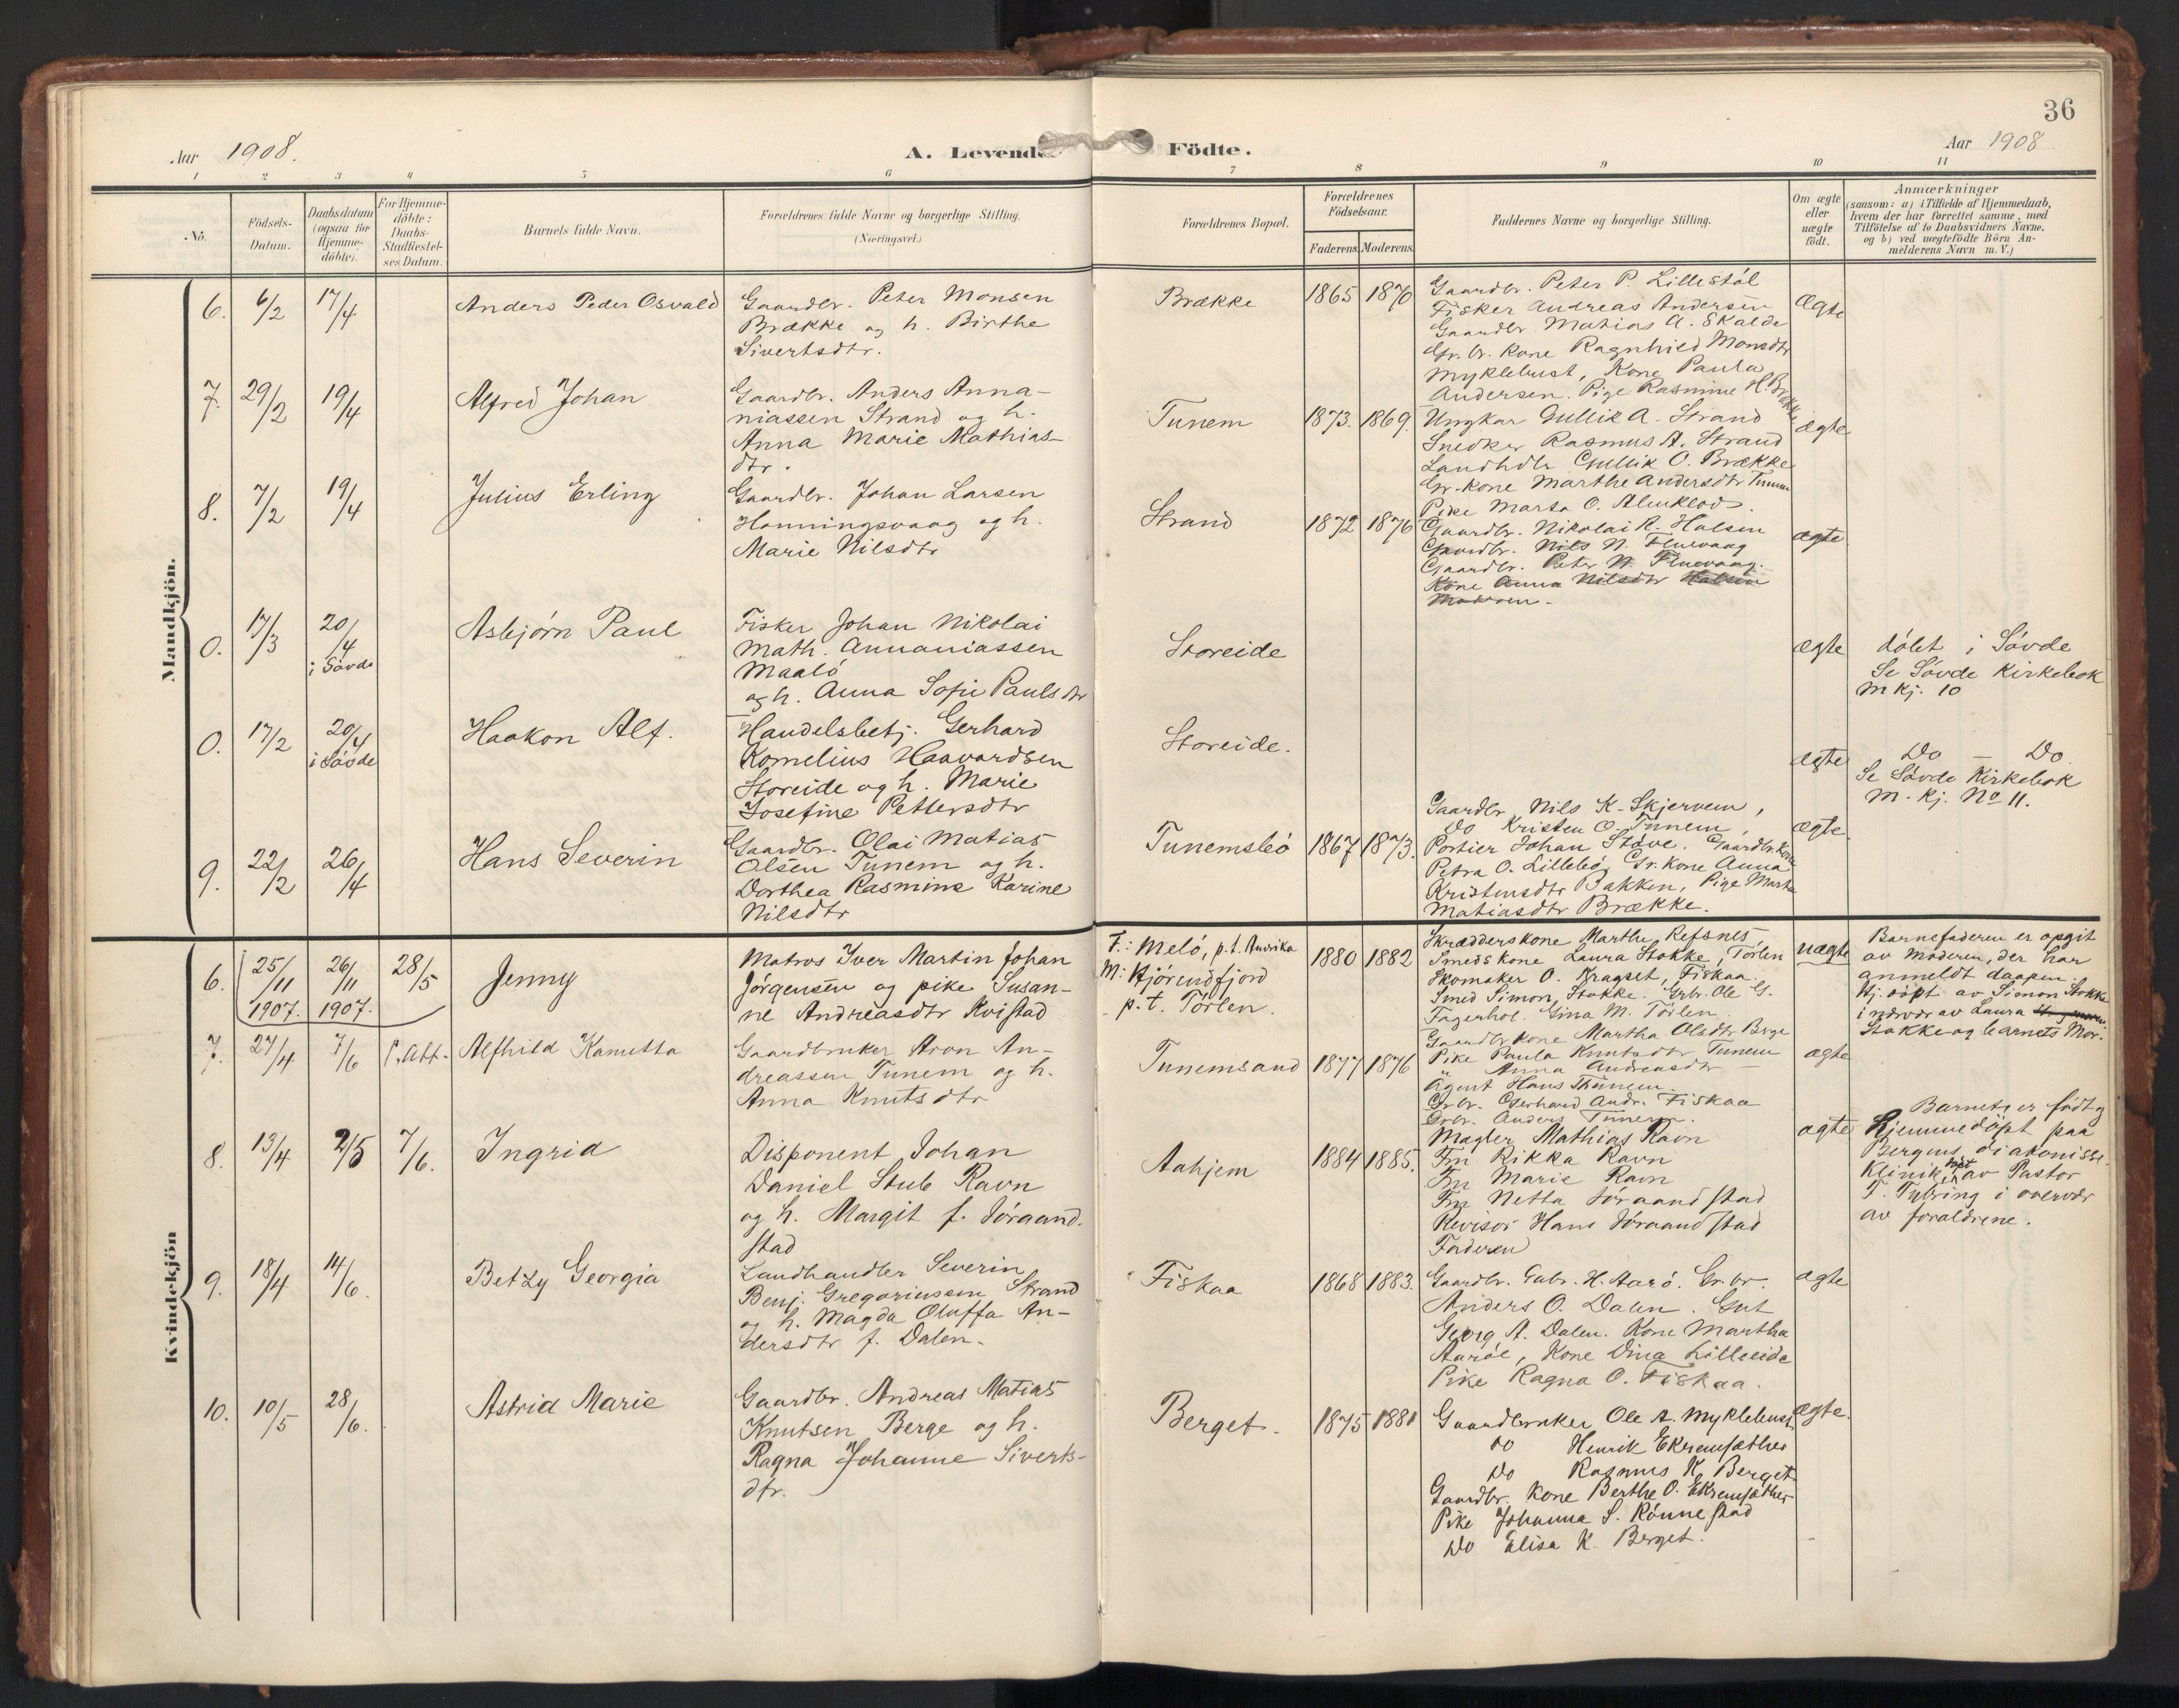 36
Aar 1908.
A. Levende Födte.
Aar 1908
1 2 3 4 5 6 7 8 9 10 11
No.
Födsels-Datum.
Daabsdatum (ogsaa for Hjemme-döbte).
For Hjemme-döbte: Daabs-Stadfæstel-ses Datum.
Barnets fulde Navn.
Forældrenes fulde Navne og borgerlige Stilling. (Næringsvei.)
Forældrenes Bopæl.
Forældrenes Födselsaar.
Faderens. Moderens.
Faddernes Navne og borgerlige Stilling.
Om ægte eller uægte födt.
Anmærkninger
(saasom: a) i Tilfælde af Hjemmedaab, hvem der har forrettet samme, med Tilföielse af to Daabsvidners Navne, og b) ved uægtefödte Börn An-melderens Navn m.V.)
Mandkjön.
6. 6/2 17/4 Anders Peder Osvald
Gaardbr. Peter Monsen
Brække og h. Birthe
Sivertsdtr.
Brække 1865 1870
Gaardbr. Peter P. Lillestöl
Fisker Andreas Andersen
Gaardbr. Matias A. Skalde
Gr. br. Kone Ragnhild Monsdtr
Myklebust, Kone Paula
Andersen. Pige Rasmine H. Brække
Ægte
7. 29/2 19/4 Alfred Johan
Gaardbr. Anders Anna-
niassen Strand og h.
Anna Marie Mathias-
dtr.
Tunem 1873. 1869.
Ungkar Gullik A. Strand
Snedker Rasmus A. Strand
Landhdlr Gullik O. Brække
Gr. kone Marthe Andersdtr Tunem
Pike Marta O. Almklod.
ægte
8. 7/2 19/4 Julius Erling
Gaardbr. Johan Larsen
Honningsvaag og h.
Marie Nilsdtr
Strand 1872 1876
Gaardbr. Nikolai R. Halsen
Gaardbr. Nils N. Fluevaag
Gaardbr. Peter N. Fluevaag.
Kone Anna Nilsdtr
ægte
0. 17/3 20/4 i Sövde Asbjörn Paul
Fisker Johan Nikolai
Math. Annaniassen
Maalö
og h. Anna Sofie Paulsdtr
Storeide
ægte
döbt i Sövde
Se Sövde Kirkebok
M Kj. 10
0. 17/2 20/4 i Sövde Haakon Alf.
Handelsbetj. Gerhard
Kornelius Haavardsen
Storeide og h. Marie
Josefine Pettersdtr
Storeide.
ægte
Do – Do
Se Sövde Kirkebok
M. Kj. No 11.
9. 22/2 26/4 Hans Severin
Gaardbr. Olai Matias
Olsen Tunem og h.
Dorthea Rasmine Karine
Nilsdtr
Tunemsbö 1867 1873.
Gaardbr Nils K. Skjervem,
Do Kristen O. Tunem,
Portier Johan Stöve. Gaardbr. Kone
Petra O. Lillebö, Gr. kone Anna
Kristensdtr Bakken, Pige Marta
Matiasdtr Brække.
ægte.
Kvindekjön
6. 25/11 1907. 26/11 1907. 28/5 Jenny
Matros Iver Martin Johan
Jörgensen og pike Susan-
ne Andreasdtr Kvistad
F.: Melö, p.t. Amerika
M: Hjörundfjord
p.t. Törlen.
1880 1882
Skrædderskone Marthe Refsnes
Smedskone Laura Stokke, Törlen
Skomaker O. Kragset, Fiskaa.
Smed Simon Stokke. Grbr. Ole G.
Fagerhol. Gina M. Törlen.
uægte
Barnefaderen er opgit
av moderen, der har
anmeldt daapen.
Hj. döpt av Simon Stokke
i nærvær av Laura
Stokke og barnets Mor.
7. 27/4 7/6 Alfhild Kanutta
Gaardbruker Aron An-
dreassen Tunem og h.
Anna Knutsdtr
Tunemsand 1877 1876
Gaardbr kone Martha Olsdtr Berge
Pike Paula Knutsdtr Tunem
" Anna Andreasdtr –
Agent Hans Thunem.
Grbr. Gerhard Andr. Fiskaa
Grbr. Anders Tunem.
ægte
8. 13/4 2/5 7/6. Ingrid
Disponent Johan
Daniel Stub Ravn
og h. Margit f. Jöraand-
stad
Aahjem 1884 1885.
Mægler Mathias Ravn
Fru Rikka Ravn
Fru Marie Ravn
Fru Netta Jöraandstad
Revisor Hans Jöraandstad
Faderen
ægte
Barnet er födt og
hjemmedöpt paa
Bergens diakonisse-
klinik döpt av Pastor
T. Tybring i overvær
av forældrene.
9. 18/4 14/6. Betzy Georgia
Landhandler Severin
Benj. Gregoriussen Strand
og h. Magda Oluffa An-
dersdtr f. Dalen.
Fiskaa 1868 1883.
Gaardbr. Gabr. H. Aarö. Gr. br.
Anders O. Dalen. Gut
Georg A. Dalen. Kone Martha
Aaröe, Kone Dina Lilleeide
Pike Ragna O. Fiskaa.
ægte
10. 10/5 28/6. Astrid Marie
Gaardbr. Andreas Matias
Knutsen Berge og h.
Ragna Johanne Siverts-
dtr.
Berget. 1875 1881
Gaardbruker Ole A. Myklebust
Do Henrik Ekremsæther
Do Rasmus K. Berget.
Gaardbr. kone Berthe O. Ekremsæther
Pike Johanna S. Rönnestad
Do Elisa K. Berget.
Ægte.